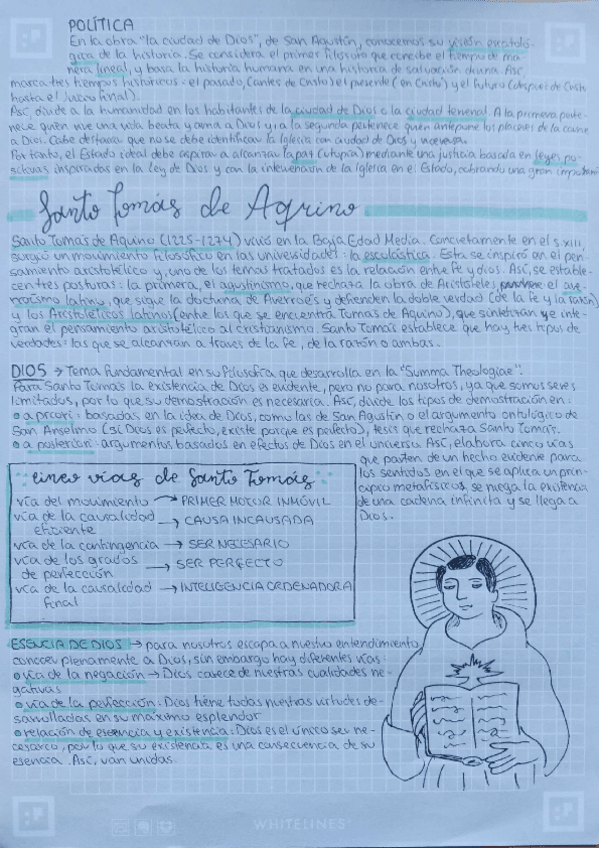 POLÍTICA
En la obra "la ciudad de Dios", de San Agustín, conocemos su visión escatoló-
gica de la historia. Se considera el primer filósofo que concibe el tiempo de ma-
nera lineal, y basa la historia humana en una historia de salvación divina. Así,
marca tres tiempos históricos: el pasado, (antes de Cristo) el presente (en Cristo) y el futuro (después de Cristo
hasta el Juicio Final).
Así, divide a la humanidad en los habitantes de la ciudad de Dios o la ciudad terrenal. A la primera perte-
nece quien vive una vida beata y ama a Dios y a la segunda pertenece quien antepone los placeres de la carne
a Dios. Cabe destacar que no se debe identificar la Iglesia con ciudad de Dios y viceversa.
Por tanto, el Estado ideal debe aspirar a alcanzar la paz (utopía) mediante una justicia basada en leyes po-
sitivas inspiradas en la ley de Dios y con la intervención de la Iglesia en el Estado, cobrando una gran
Santo Tomás de Aquino
Santo Tomás de Aquino (1225-1274) vivió en la Baja Edad Media. Concretamente en el s.XIII,
surgió un movimiento filosófico en las universidades: la escolástica. Esta se inspiró en el pen-
samiento aristotélico y, uno de los temas tratados es la relación entre fe y dios. Así, se estable-
cen tres posturas: la primera, el agustinismo, que rechaza la obra de Aristóteles, el ave-
rroísmo latino, que sigue la doctrina de Averroes y defienden la doble verdad (de la fe y la razón)
y los Aristotélicos latinos (entre los que se encuentra Tomás de Aquino), que sintetizan e inte-
gran el pensamiento aristotélico al cristianismo. Santo Tomás establece que hay tres tipos de
verdades: las que se alcanzan a través de la fe, de la razón o ambas.
DIOS → Tema fundamental en su filosofía que desarrolla en la "Summa Theologiae".
Para Santo Tomás la existencia de Dios es evidente, pero no para nosotros, ya que somos seres
limitados, por lo que su demostración es necesaria. Así, divide los tipos de demostración en:
• a priori: basadas en la idea de Dios, como las de San Agustín o el argumento ontológico de
San Anselmo (si Dios es perfecto, existe porque es perfecto), tesis que rechaza Santo Tomás.
• a posteriori: argumentos basados en efectos de Dios en el universo. Así, elabora cinco vías
que parten de un hecho evidente para
los sentidos en el que se aplica un prin-
cipio metafísico, se niega la existencia
de una cadena infinita y se llega a
Dios.
cinco vías de Santo Tomás
vía del movimiento → PRIMER MOTOR INMÓVIL
vía de la causalidad
eficiente → CAUSA INCAUSADA
vía de la contingencia → SER NECESARIO
vía de los grados
de perfección → SER PERFECTO
vía de la causalidad
final → INTELIGENCIA ORDENADORA
ESENCIA DE DIOS → para nosotros escapa a nuestro entendimiento
conocer plenamente a Dios, sin embargo hay diferentes vías:
• vía de la negación → Dios carece de nuestras cualidades ne-
gativas
• vía de la perfección: Dios tiene todas nuestras virtudes de-
sarrolladas en su máximo esplendor
• relación de esencia y existencia: Dios es el único ser ne-
cesario, por lo que su existencia es una consecuencia de su
esencia. Así, van unidas.
WHITELINES